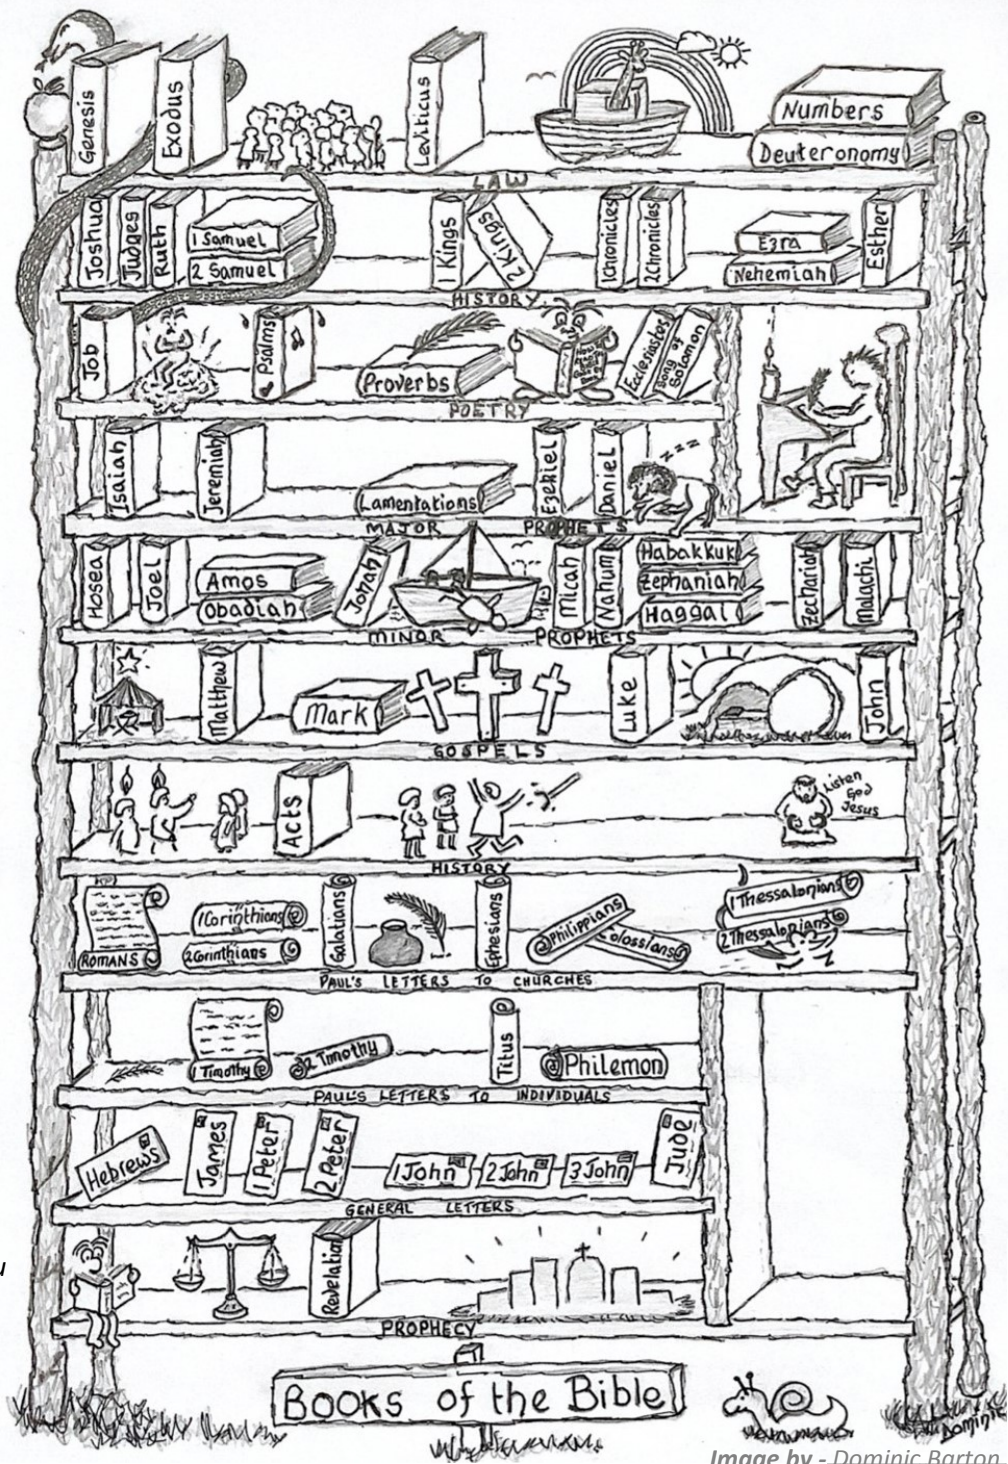 Genesis
Exodus
Leviticus
Numbers
Deuteronomy
LAW
Joshua
Judges
Ruth
1 Samuel
2 Samuel
1 Kings
2 Kings
1 Chronicles
2 Chronicles
Ezra
Nehemiah
Esther
HISTORY
Job
Psalms
Proverbs
Ecclesiastes
Song of
Solomon
POETRY
Isaiah
Jeremiah
Lamentations
Ezekiel
Daniel
zzz
MAJOR PROPHETS
Hosea
Joel
Amos
Obadiah
Jonah
Micah
Nahum
Habakkuk
Zephaniah
Haggai
Zechariah
Malachi
MINOR PROPHETS
Matthew
Mark
Luke
John
GOSPELS
Acts
Listen
God
Jesus
HISTORY
ROMANS
1 Corinthians
2 Corinthians
Galatians
Ephesians
Philippians
Colossians
1 Thessalonians
2 Thessalonians
PAUL'S LETTERS TO CHURCHES
1 Timothy
2 Timothy
Titus
Philemon
PAUL'S LETTERS TO INDIVIDUALS
Hebrews
James
1 Peter
2 Peter
1 John
2 John
3 John
Jude
GENERAL LETTERS
Revelation
PROPHECY
Books of the Bible
Dominic
Image by - Dominic Barton